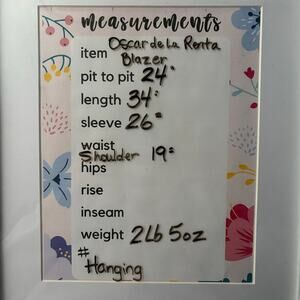 measurements
item Oscar de La Renta
Blazer
pit to pit 24"
length 34"
sleeve 26"
waist
Shoulder 19"
hips
rise
inseam
weight 2Lb 5oz
#
Hanging